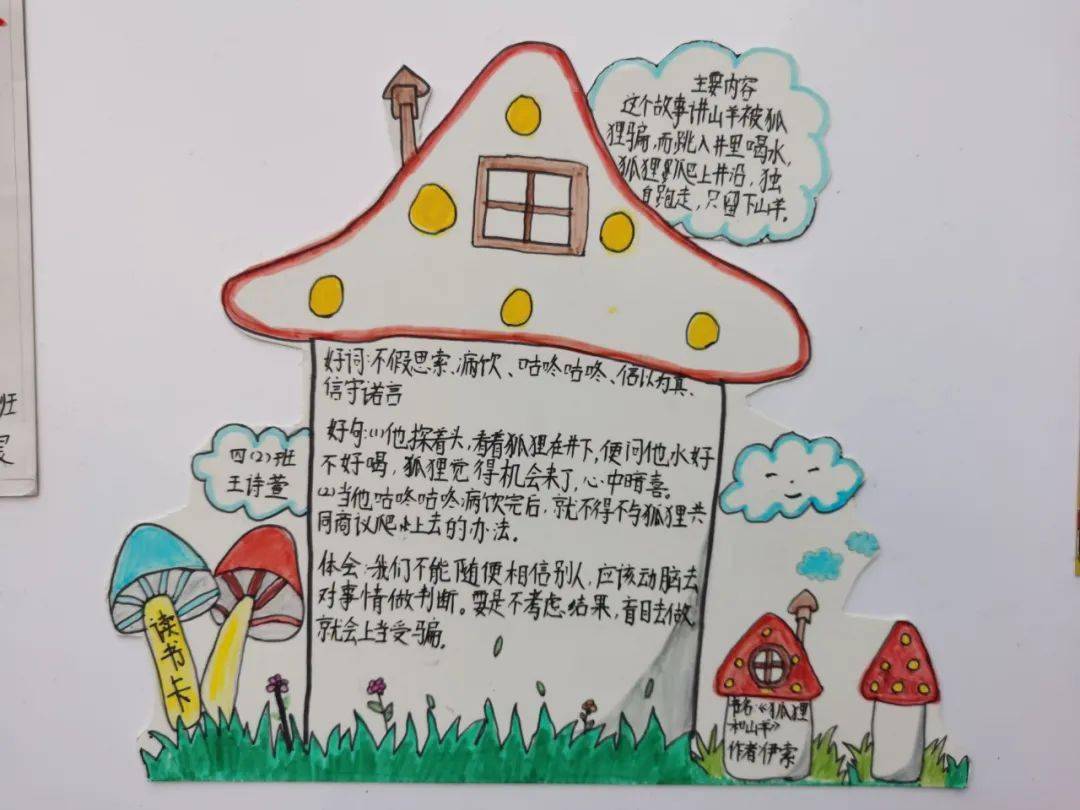 主要内容
这个故事讲山羊被狐
狸骗,而跳入井里喝水,
狐狸爬上井沿,独
自跑走,只留下山羊。
好词:不假思索、痛饮、咕咚咕咚、信以为真、
信守诺言
好句:(1)他探着头,看着狐狸在井下,便问他水好
不好喝,狐狸觉得机会来了,心中暗喜。
(2)当他咕咚咕咚痛饮完后,就不得不与狐狸共
同商议爬上去的办法。
体会:我们不能随便相信别人,应该动脑去
对事情做判断。要是不考虑结果,盲目去做,
就会上当受骗。
四(2)班
王诗萱
读书卡
书名:《狐狸
和山羊》
作者:伊索
班